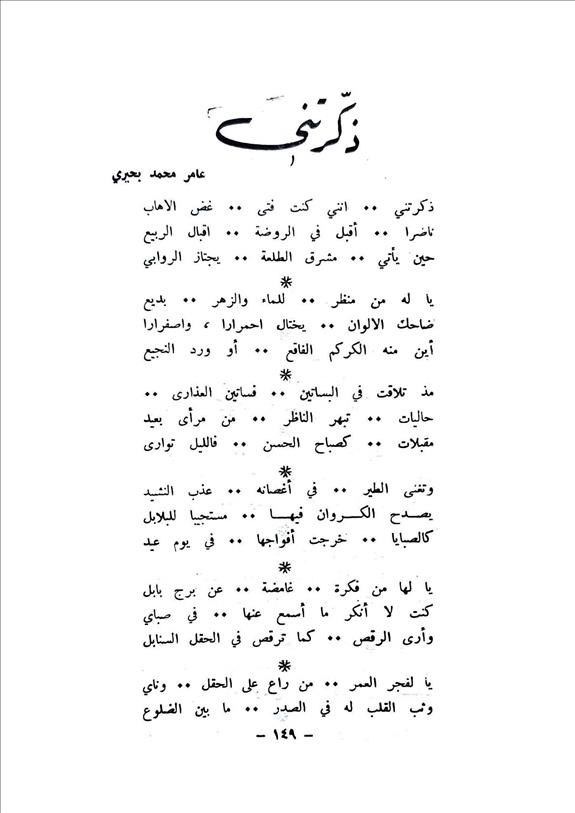 ذكّرتني
عامر محمد بحيري
ذكرتني ٠٠ انني كنت فتى ٠٠ غض الاهاب
ناضرا ٠٠ أقبل في الروضة ٠٠ اقبال الربيع
حين يأتي ٠٠ مشرق الطلعة ٠٠ يجتاز الروابي
*
يا له من منظر ٠٠ للماء والزهر ٠٠ بديع
ضاحك الالوان ٠٠ يختال احمرارا ، واصفرارا
أين منه الكركم الفاقع ٠٠ أو ورد النجيع
*
مذ تلاقت في البساتين ٠٠ فساتين العذارى ٠٠
حاليات ٠٠ تبهر الناظر ٠٠ من مرأى بعيد
مقبلات ٠٠ كصباح الحسن ٠٠ فالليل توارى
*
وتغنى الطير ٠٠ في أغصانه ٠٠ عذب النشيد
يصدح الكروان فيها ٠٠ مستجيبا للبلابل
كالصبايا ٠٠ خرجت أفواجها ٠٠ في يوم عيد
*
يا لها من فكرة ٠٠ غامضة ٠٠ عن برج بابل
كنت لا أنكر ما أسمع عنها ٠٠ في صباي
وأرى الرقص ٠٠ كما ترقص في الحقل السنابل
*
يا لفجر العمر ٠٠ من راع على الحقل ٠٠ وناي
وثب القلب له في الصدر ٠٠ ما بين الضلوع
– ١٤٩ –